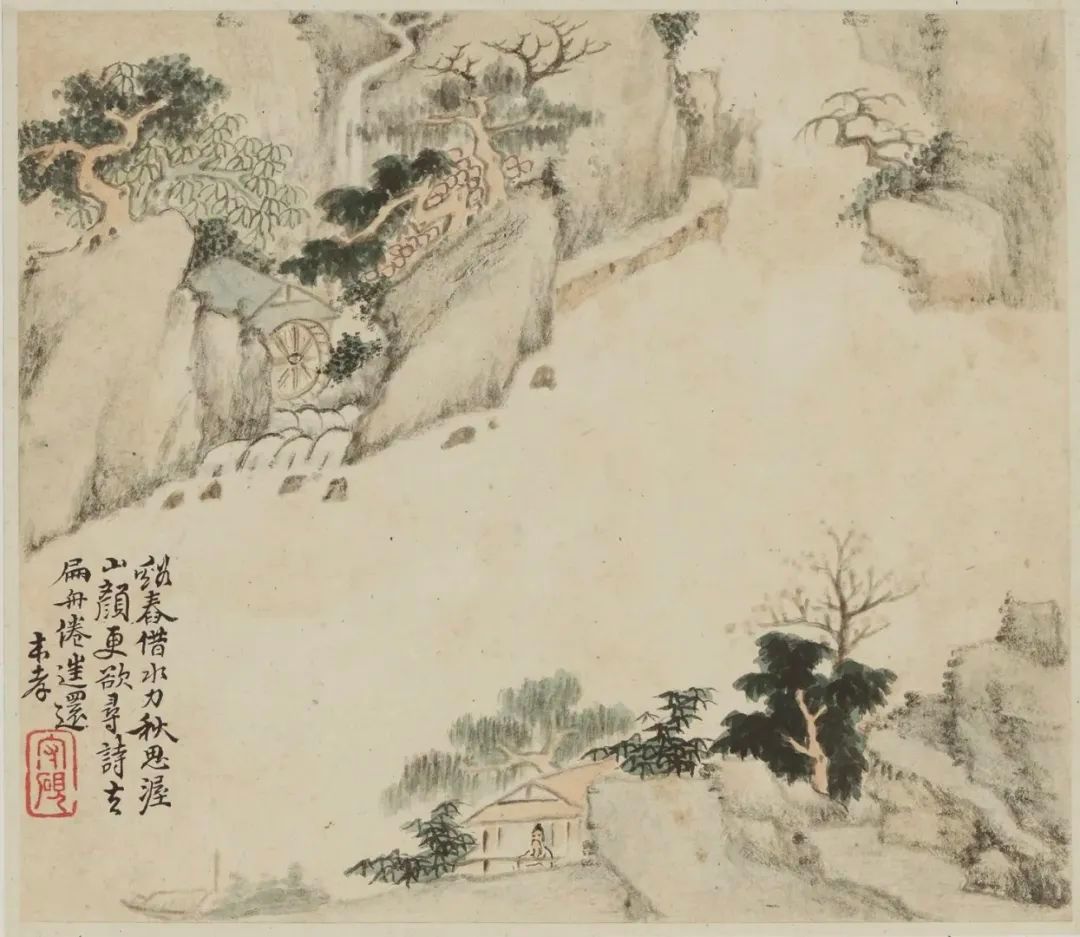 谿舂借水力秋思渥
山顏更欲尋詩去
扁舟倦還
本孝
守硯